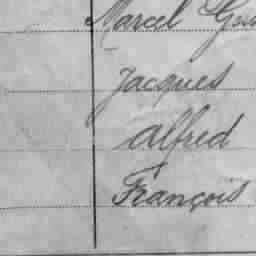 Marcel
Jacques
Alfred
François